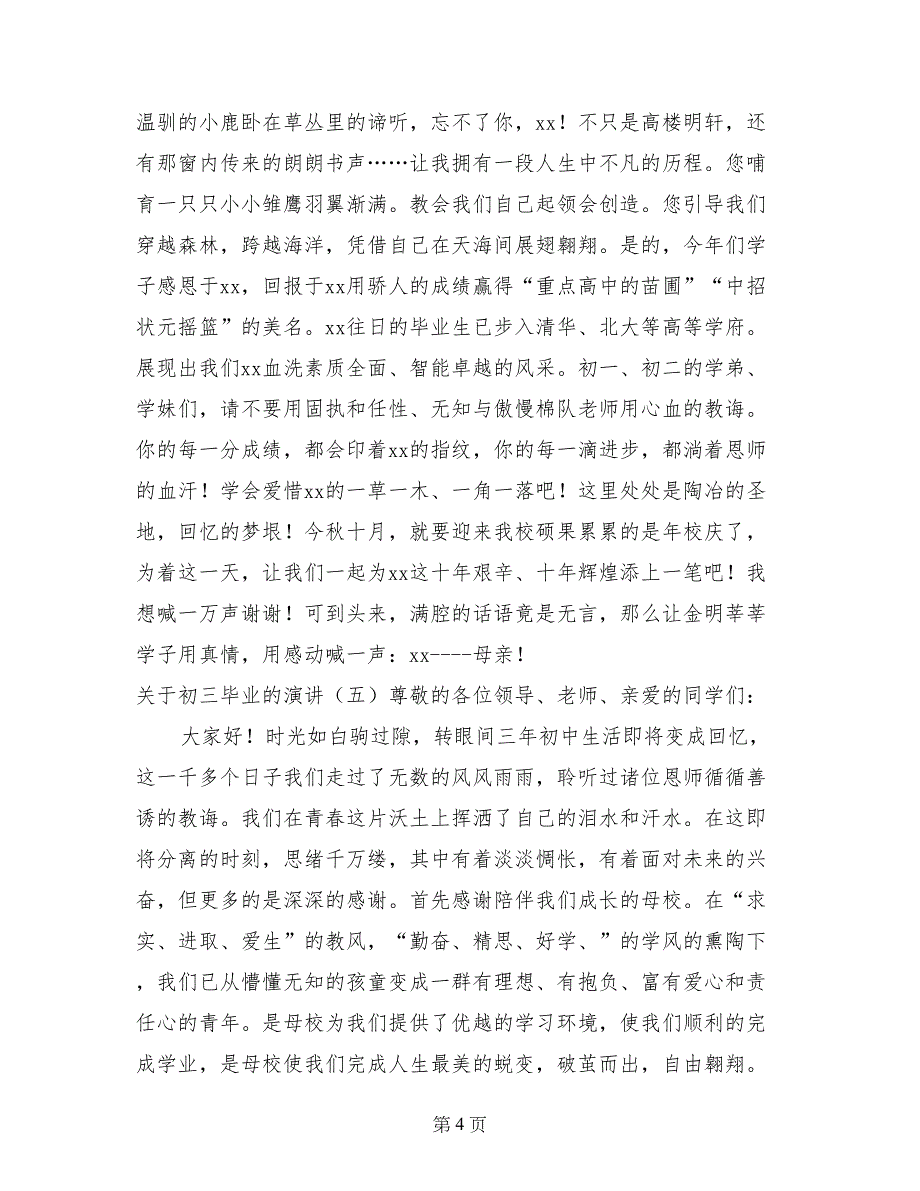 温驯的小鹿卧在草丛里的谛听，忘不了你，xx！不只是高楼明轩，还
有那窗内传来的朗朗书声……让我拥有一段人生中不凡的历程。您哺
育一只只小小雏鹰羽翼渐满。教会我们自己起领会创造。您引导我们
穿越森林，跨越海洋，凭借自己在天海间展翅翱翔。是的，今年们学
子感恩于xx，回报于xx用骄人的成绩赢得“重点高中的苗圃”“中招
状元摇篮”的美名。xx往日的毕业生已步入清华、北大等高等学府。
展现出我们xx血洗素质全面、智能卓越的风采。初一、初二的学弟、
学妹们，请不要用固执和任性、无知与傲慢棉队老师用心血的教诲。
你的每一分成绩，都会印着xx的指纹，你的每一滴进步，都淌着恩师
的血汗！学会爱惜xx的一草一木、一角一落吧！这里处处是陶冶的圣
地，回忆的梦垠！今秋十月，就要迎来我校硕果累累的是年校庆了，
为着这一天，让我们一起为xx这十年艰辛、十年辉煌添上一笔吧！我
想喊一万声谢谢！可到头来，满腔的话语竟是无言，那么让金明莘莘
学子用真情，用感动喊一声：xx----母亲！
关于初三毕业的演讲（五）尊敬的各位领导、老师、亲爱的同学们：
大家好！时光如白驹过隙，转眼间三年初中生活即将变成回忆，
这一千多个日子我们走过了无数的风风雨雨，聆听过诸位恩师循循善
诱的教诲。我们在青春这片沃土上挥洒了自己的泪水和汗水。在这即
将分离的时刻，思绪千万缕，其中有着淡淡惆怅，有着面对未来的兴
奋，但更多的是深深的感谢。首先感谢陪伴我们成长的母校。在“求
实、进取、爱生”的教风，“勤奋、精思、好学、”的学风的熏陶下
，我们已从懵懂无知的孩童变成一群有理想、有抱负、富有爱心和责
任心的青年。是母校为我们提供了优越的学习环境，使我们顺利的完
成学业，是母校使我们完成人生最美的蜕变，破茧而出，自由翱翔。
第 4 页